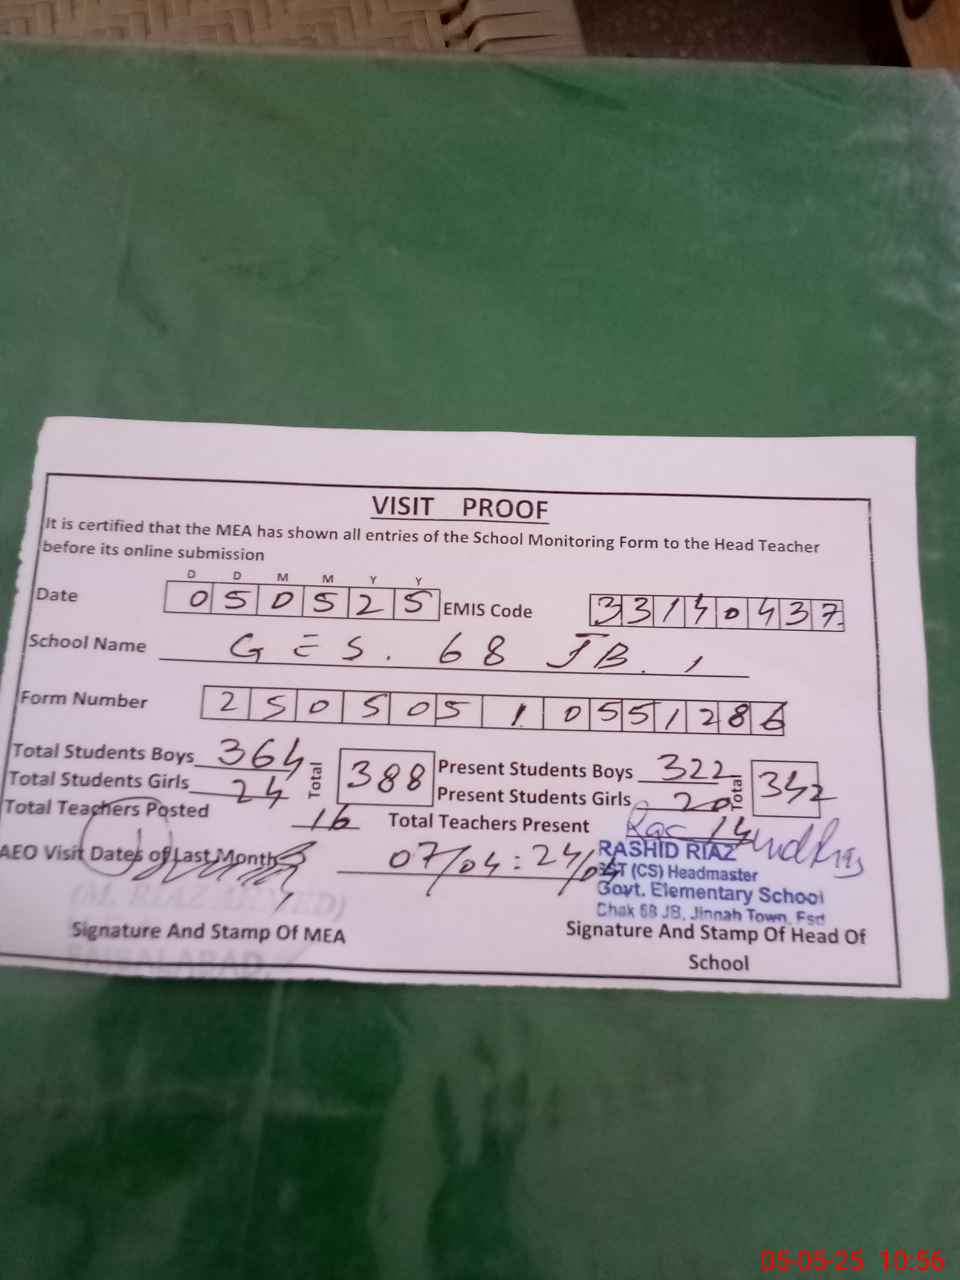 VISIT PROOF
It is certified that the MEA has shown all entries of the School Monitoring Form to the Head Teacher
before its online submission
D D M M Y Y
Date 0 5 0 5 2 5 EMIS Code 3 3 1 4 0 4 3 7
School Name G E S . 68 JB .
Form Number 2 5 0 5 0 5 1 0 5 5 1 2 8 6
Total Students Boys 364 Total 388 Present Students Boys 322 Total 342
Total Students Girls 24 Present Students Girls 20
Total Teachers Posted 16 Total Teachers Present 14
AEO Visit Dates of Last Month 07/04 : 24/04
RASHID RIAZ
SST (CS) Headmaster
Govt. Elementary School
Chak 68 JB, Jinnah Town, Fsd
(M. RIAZ AHMED)
Signature And Stamp Of MEA
Signature And Stamp Of Head Of
School
FAISALABAD.
05-05-25 10:56